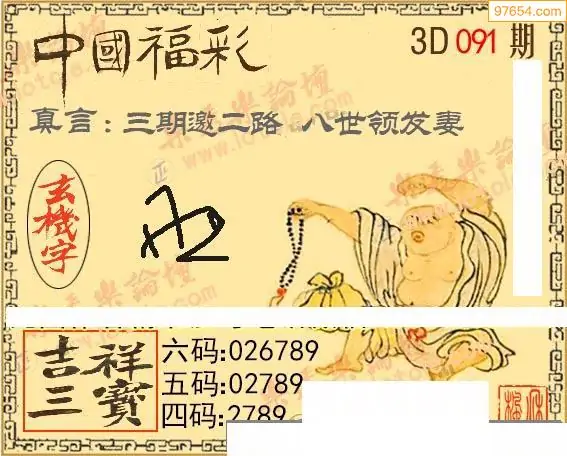 97654.com
中國福彩
3D 091 期
真言：三期邀二路 八世领发妻
玄機字
吉祥三寶
六码:026789
五码:02789
四码:2789